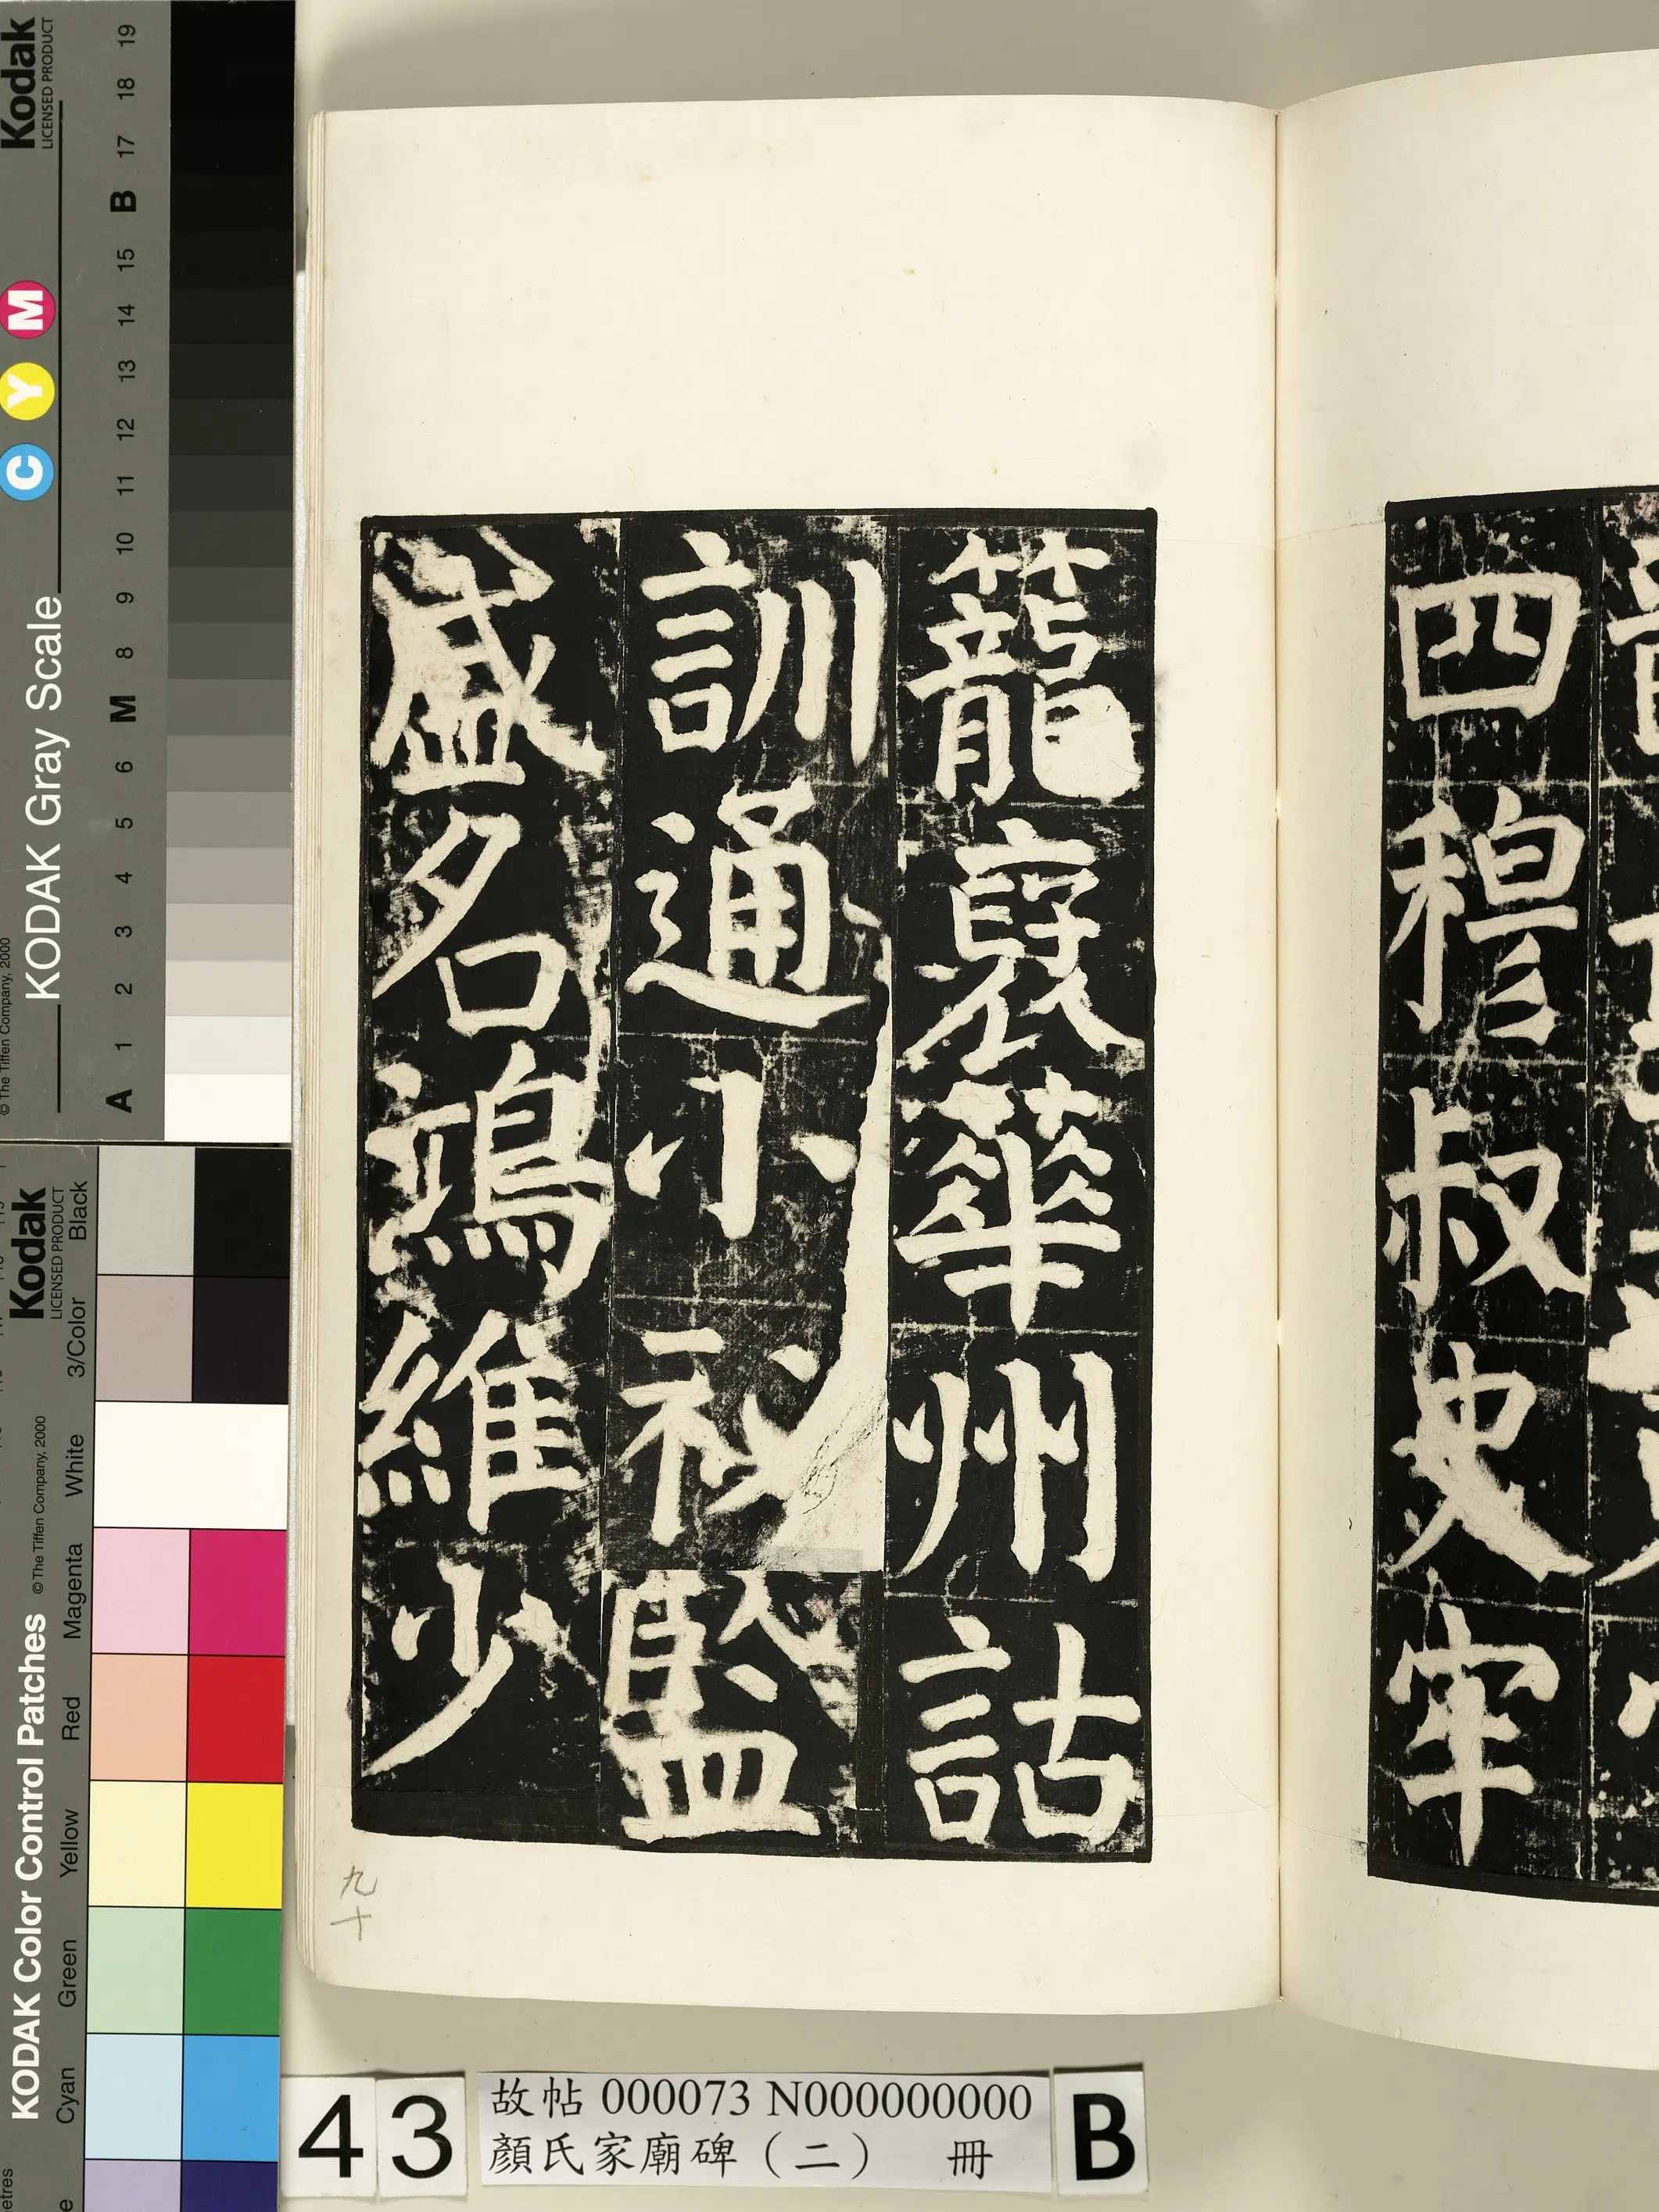 四穆叔史宰
籠裦華州詁
訓通小祕監
盛名鴻維少
九十
43
故帖 000073 N000000000
顏氏家廟碑（二） 冊
B
Kodak
LICENSED PRODUCT
KODAK Gray Scale
C Y M
© The Tiffen Company, 2000
A 1 2 3 4 5 6 M 8 9 10 11 12 13 14 15 B 17 18 19
Kodak
LICENSED PRODUCT
KODAK Color Control Patches
© The Tiffen Company, 2000
Cyan Green Yellow Red Magenta White 3/Color Black